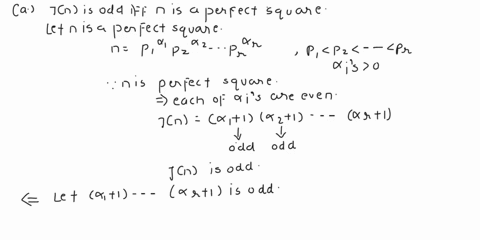 (a.) τ(n) is odd iff n is a perfect square.
Let n is a perfect square.
n = p₁^α₁ p₂^α₂ --- pᵣ^αᵣ , p₁ < p₂ < --- < pᵣ
αᵢ's > 0
∵ n is perfect square.
⇒ each of αᵢ's are even.
τ(n) = (α₁+1) (α₂+1) --- (αᵣ+1)
↓ ↓
odd odd
τ(n) is odd.
⇐ Let (α₁+1) --- (αᵣ+1) is odd.